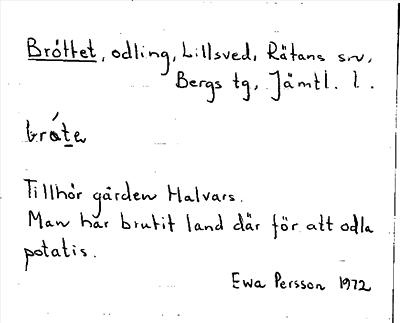 Bróttet, odling, Lillsved, Rätans sn,
Bergs tg, Jämtl. l.
bróte
Tillhör gården Halvars.
Man har brutit land där för att odla
potatis.
Ewa Persson 1972